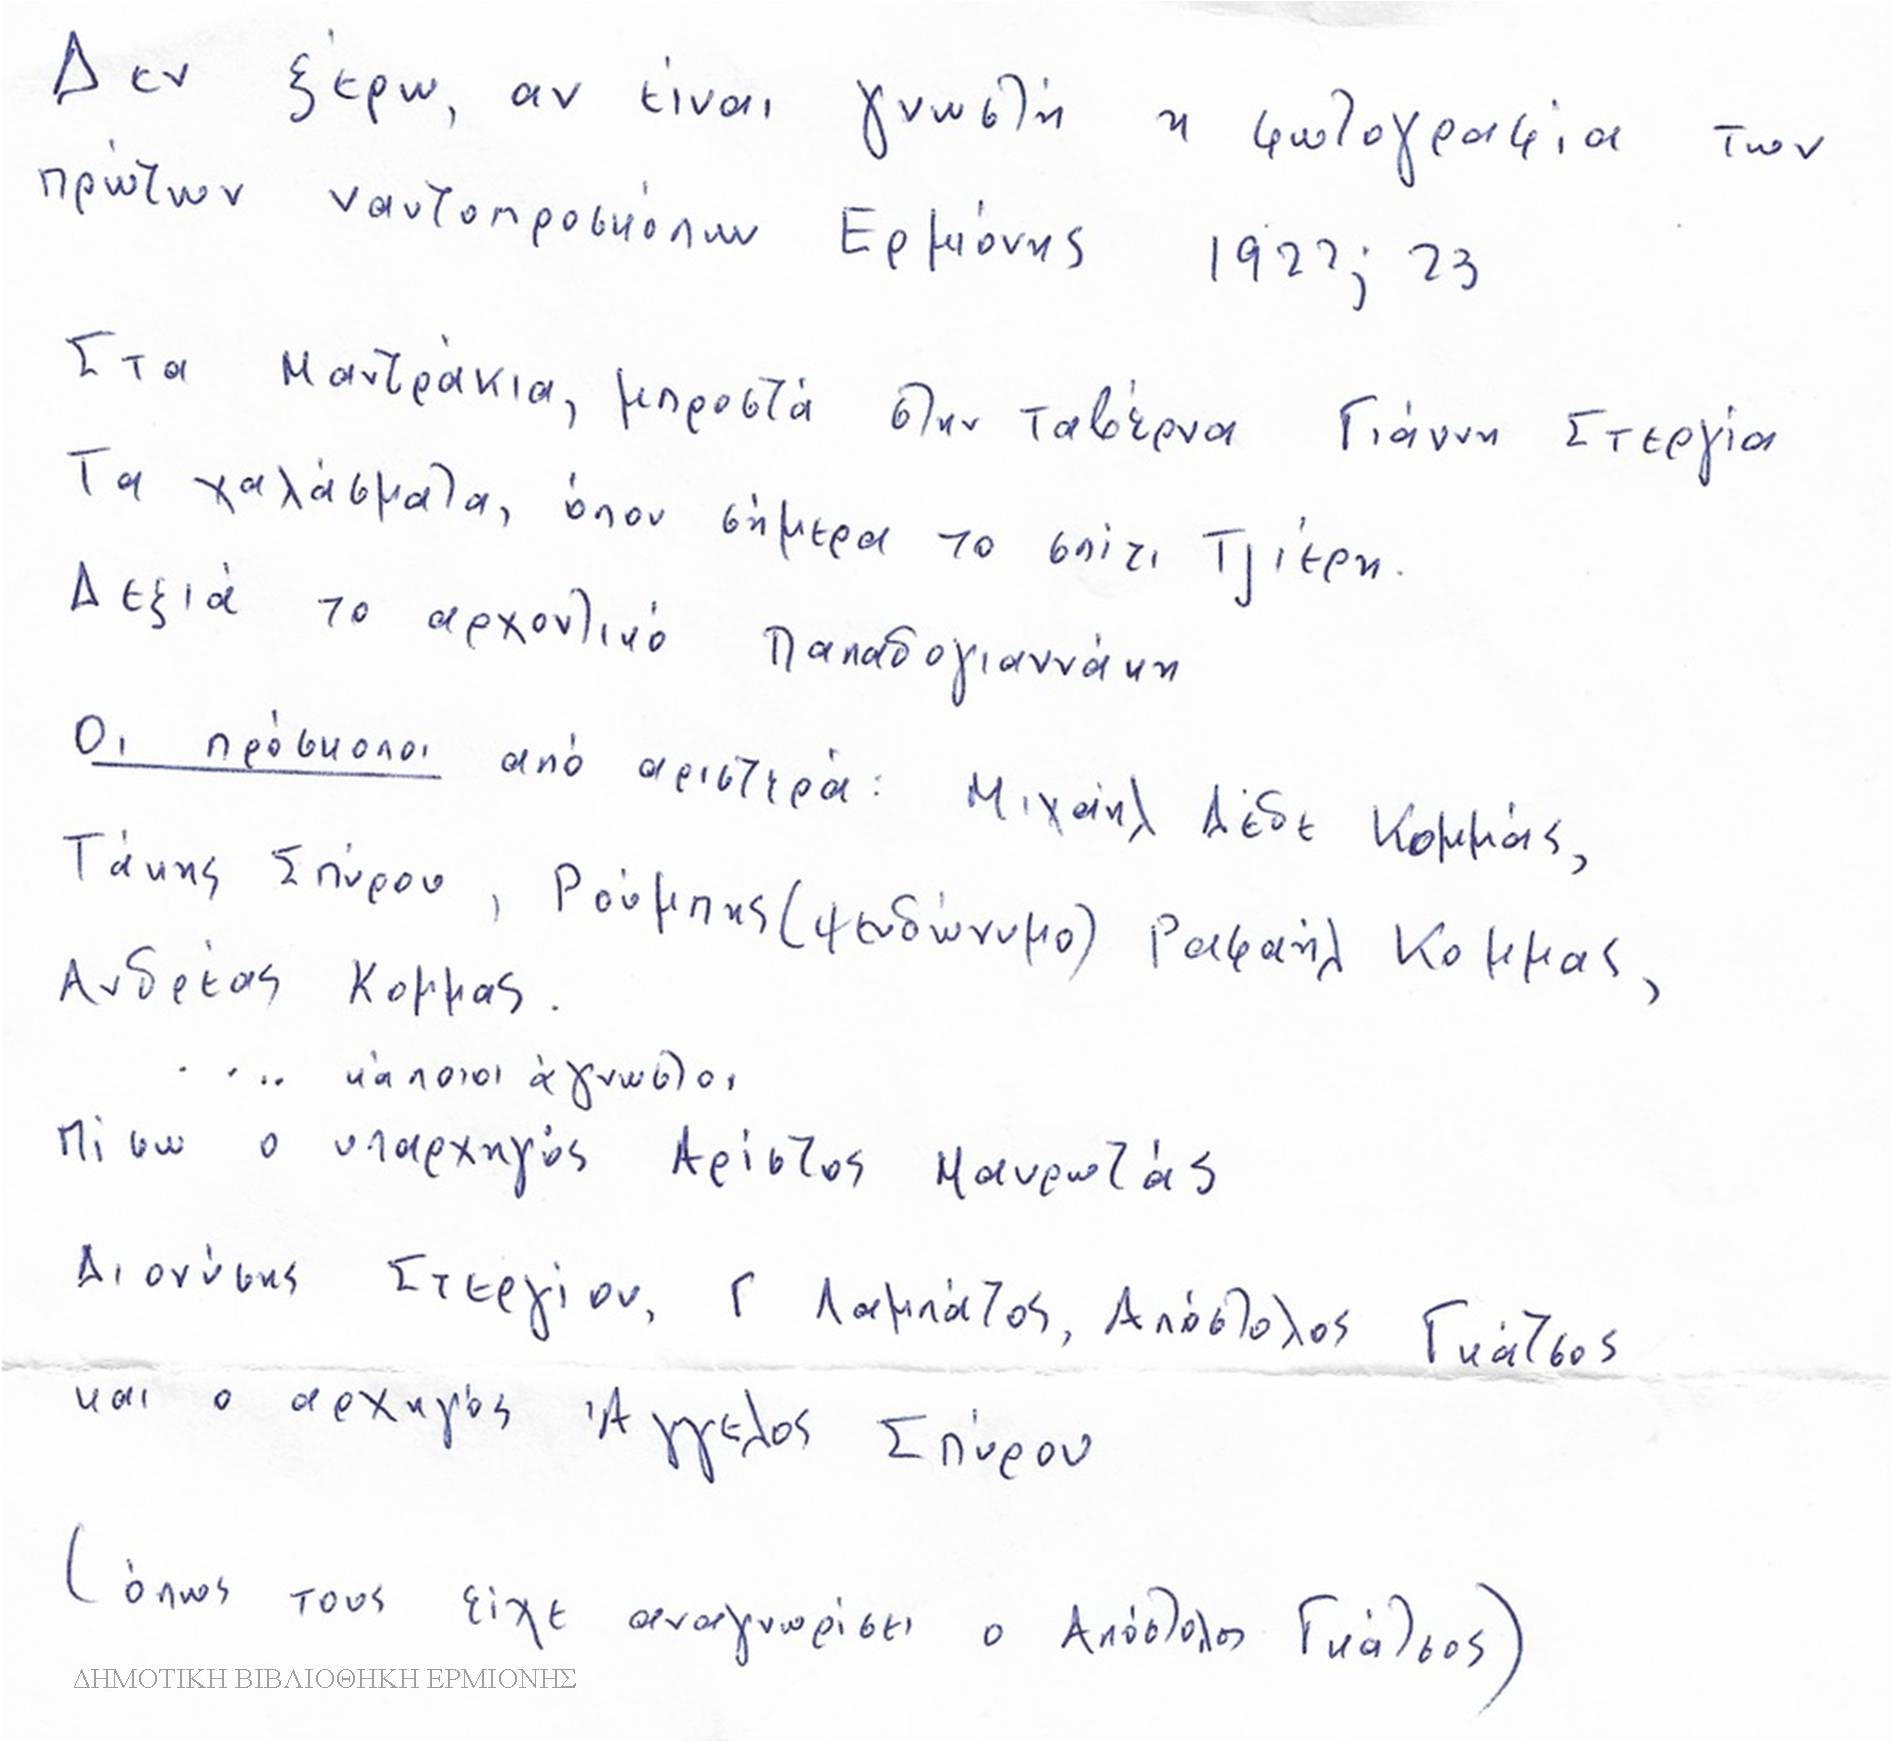 Δεν ξέρω, αν είναι γνωστή η φωτογραφία των
πρώτων ναυτοπροσκόπων Ερμιόνης 1922; 23
Στα Μαντράκια, μπροστά στην ταβέρνα Γιάννη Στεργία
Τα χαλάσματα, όπου σήμερα το σπίτι Τζιέρη.
Δεξιά το αρχοντικό Παπαδογιαννάκη
Οι πρόσκοποι από αριστερά: Μιχαήλ Δέδε Κομμάς,
Τάκης Σπύρου, Ρούμπης (ψευδώνυμο) Ραφαήλ Κομμας,
Ανδρέας Κομμας.
.... κάποιοι άγνωστοι
Πίσω ο υπαρχηγός Αρίστος Μαυρωτάς
Διονύσης Στεργίου, Γ Λαμπάτος, Απόστολος Γκάτσος
και ο αρχηγός Άγγελος Σπύρου
(όπως τους είχε αναγνωρίσει ο Απόστολος Γκάτσος)
ΔΗΜΟΤΙΚΗ ΒΙΒΛΙΟΘΗΚΗ ΕΡΜΙΟΝΗΣ